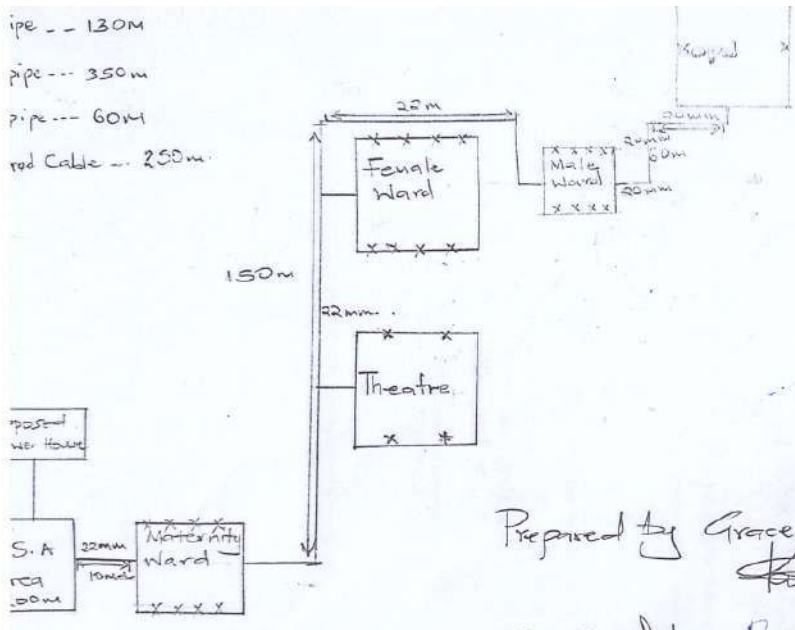 ipe -- 130m
pipe --- 350m
pipe --- 60m
red Cable -- 250m.
22m
Female
Ward
Male
Ward
20mm
60m
20mm
150m
22mm.
Theatre
posed
wer House
S.A
rea
00m
22mm
Maternity
Ward
Prepared by Grace